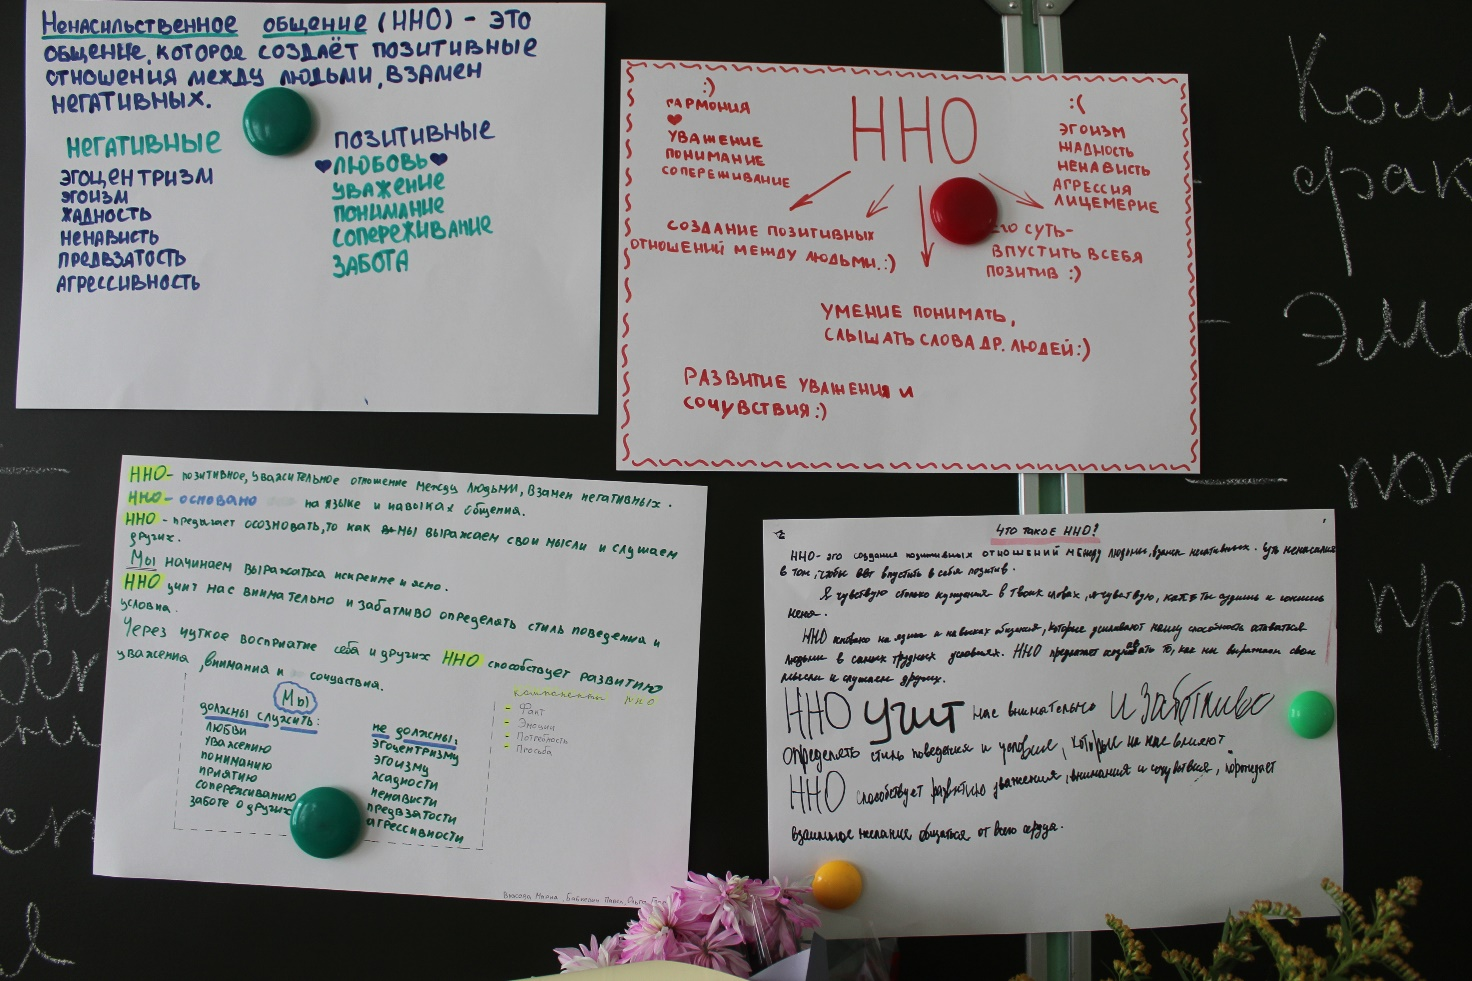 Ненасильственное общение (ННО) - это
общение, которое создаёт позитивные
отношения между людьми, взамен
негативных.
негативные
эгоцентризм
эгоизм
жадность
ненависть
предвзатость
агрессивность
позитивные
любовь
уважение
понимание
сопереживание
забота
:)
гармония
уважение
понимание
сопереживание
ННО
:(
эгоизм
жадность
ненависть
агрессия
лицемерие
создание позитивных
отношений между людьми. :)
его суть-
впустить в себя
позитив :)
умение понимать,
слышать слова др. людей :)
развитие уважения и
сочувствия :)
ННО - позитивное, уважительное отношение между людьми, взамен негативных.
ННО - основано на языке и навыках общения.
ННО - предлагает осозновать, то как мы выражаем свои мысли и слушаем
других.
Мы начинаем выражаться искренне и ясно.
ННО учит нас внимательно и забатливо определять стиль поведения и
условия.
Через чуткое восприятие себя и других ННО способствует развитию
уважения, внимания и сочувствия.
Мы
должны служить:
любви
уважению
пониманию
приятию
сопереживанию
заботе о других
не должны:
эгоцентризму
эгоизму
жадности
ненависти
предвзатости
агрессивности
компоненты ННО
- Факт
- Эмоции
- Потребность
- Просьба
Что такое ННО?
ННО - это создание позитивных отношений между людьми, взамен негативных. Суть
в том, чтобы впустить в себя позитив.
Я чувствую столько в твоих словах, я чувствую, как ты судишь и
меня.
ННО основано на языке и навыках общения, которые усиливают нашу способность оставаться
людьми в самых трудных условиях. ННО предлагает осознавать то, как мы выражаем свои
мысли и слушаем других.
ННО учит нас внимательно и заботливо
определять стиль поведения и условие, которые на нас влияют
ННО способствует развитию уважения, внимания и сочувствия, порождает
взаимное желание общаться от всего сердца.
Ком
фак
эмо
пот
пр